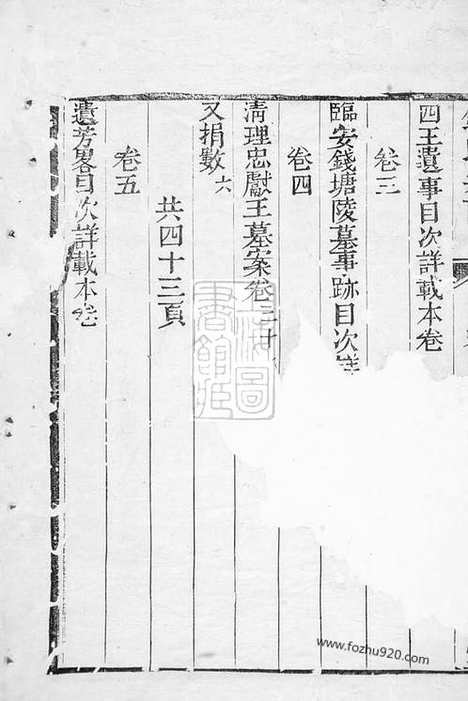 四王遺事目次詳載本卷
卷三
臨安錢塘陵墓事跡目次詳
卷四
清理忠獻王墓案卷三十
又捐數六
共四十三頁
卷五
遺芳畧目次詳載本卷
上海圖書館藏
www.fozhu920.com